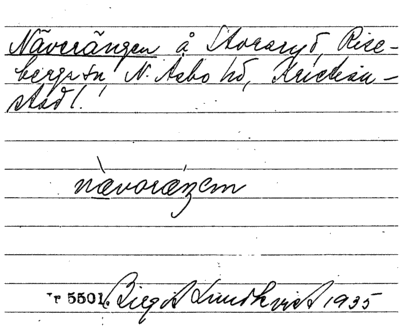 Näverängen å Storaryd, Rise-
berga sn, N. Åsbo hd, Kristian-
stads l.
nævoræŋem
5501. Birgit Lundkvist 1935